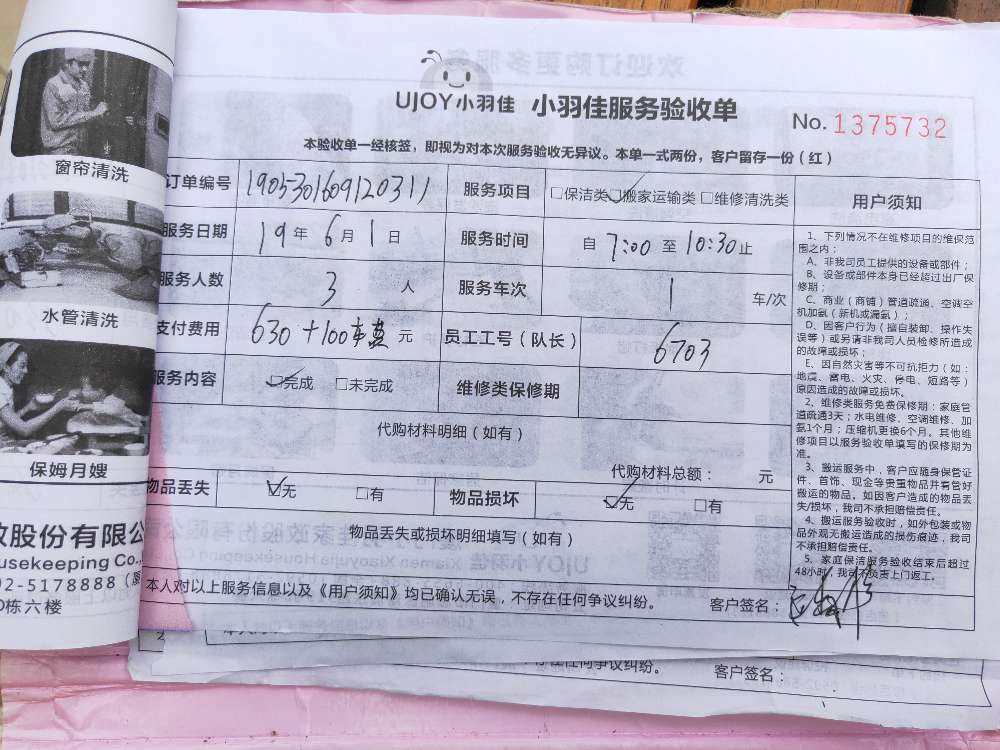 窗帘清洗
水管清洗
保姆月嫂
政股份有限公
usekeeping Co.,
92-5178888
栋六楼
欢迎订购更多服
UJOY小羽佳 小羽佳服务验收单
No. 1375732
本验收单一经核签，即视为对本次服务验收无异议。本单一式两份，客户留存一份（红）
订单编号 190530160912031 服务项目 □保洁类 ☑搬家运输类 □维修清洗类
服务日期 19年6月1日 服务时间 自7:00至10:30止
服务人数 3 人 服务车次 1 车/次
支付费用 630+100车费 元 员工工号（队长） 6703
服务内容 ☑完成 □未完成 维修类保修期
代购材料明细（如有）
代购材料总额： 元
物品丢失 ☑无 □有 物品损坏 ☑无 □有
物品丢失或损坏明细填写（如有）
本人对以上服务信息以及《用户须知》均已确认无误，不存在任何争议纠纷。 客户签名：
用户须知
1、下列情况不在维修项目的维保范
围之内：
A、非我司员工提供的设备或部件；
B、设备或部件本身已经超过出厂保
修期；
C、商业（商铺）管道疏通、空调空
机加氨（新机或漏氨）；
D、因客户行为（擅自装卸、操作失
误等）或另请非我司人员检修所造成
的故障或损坏；
E、因自然灾害等不可抗拒力（如：
地震、雷电、火灾、停电、短路等）
原因造成的故障或损坏。
2、维修类服务免费保修期：家庭管
道疏通3天；水电维修、空调维修、加
氨1个月；压缩机更换6个月。其他维
修项目以服务验收单填写的保修期为
准。
3、搬运服务中，客户应随身保管证
件、首饰、现金等贵重物品并看管好
搬运的物品。如因客户造成的物品丢
失/损坏，我司不承担赔偿责任。
4、搬运服务验收时，如外包装或物
品外观无搬运造成的损伤痕迹，我司
不承担赔偿责任。
5、家庭保洁服务验收结束后超过
48小时，我司不负责上门返工。
任何争议纠纷。 客户签名：